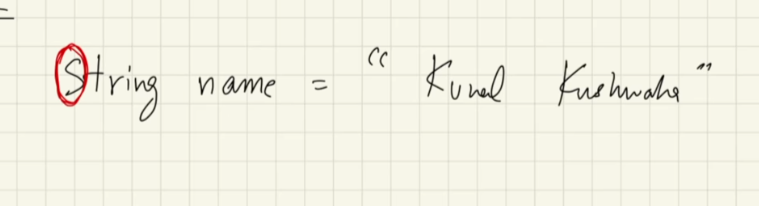 String name = "Kunal Kushwaha"